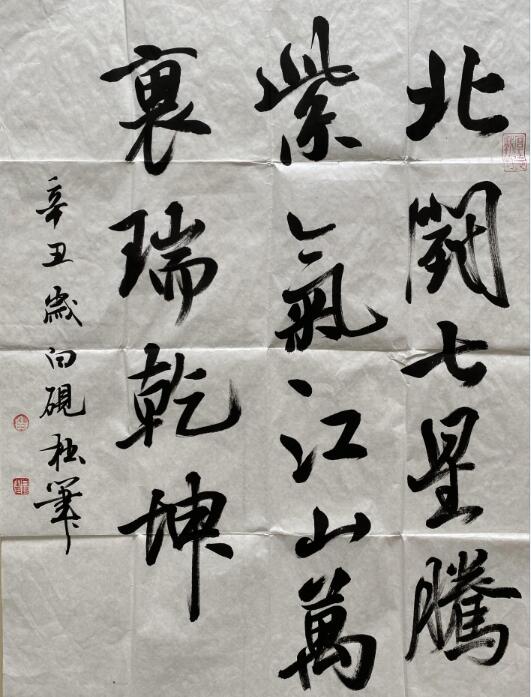 北鬥七星騰
紫氣江山萬
裏瑞乾坤
辛丑歲白硯拙筆